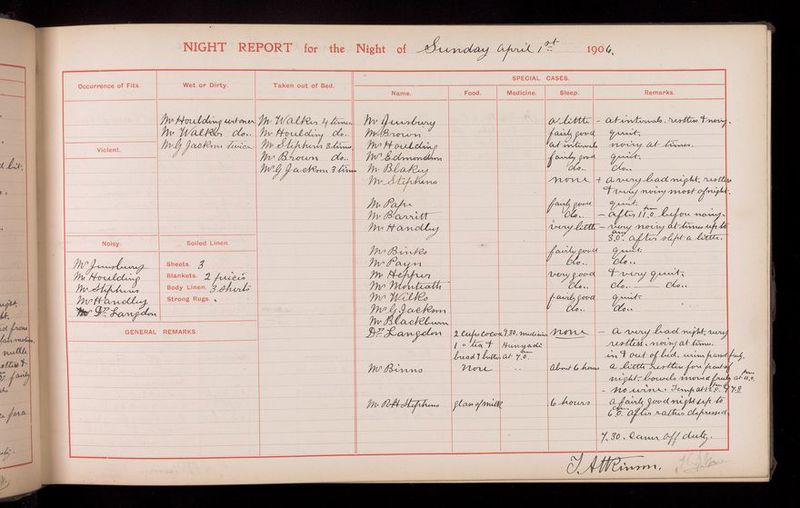 NIGHT REPORT for the Night of Sunday April 1st 1906.
Occurrence of Fits.
Wet or Dirty.
Taken out of Bed.
SPECIAL CASES.
Name.
Food.
Medicine.
Sleep.
Remarks.
Mr Houlding wet once
Mr Walker do..
Mr G Jackson twice
Mr Walker 4 times
Mr Houlding do..
Mr Stephens 3 times
Mr Brown do..
Mr G Jackson 3 times
Violent.
Noisy.
Mr Houlding
Mr Stephens
Mr Handley
Dr Langdon
Soiled Linen.
Sheets. 3
Blankets. 2 pieces
Body Linen. 3 shirts
Strong Rugs.
GENERAL REMARKS.
a little - at intervals. restless & noisy.
Mr Brown fairly good quiet.
Mr Houlding at intervals noisy at times.
Mr Edmondson fairly good quiet.
Mr Blakey do.. do..
Mr Stephens none + a very bad night. restless
& very noisy most of night.
Mr Pape fairly good quiet.
Mr Barritt do.. - after 11.0 before noisy.
Mr Handley very little - very noisy at times up to
3.0. after slept a little.
Mr Binks fairly good quiet.
Mr Payn do.. do..
Mr Hepper very good & very quiet.
Mr Monteath do.. do.. do..
Mr Wilks fairly good quiet.
Mr G Jackson do.. do..
Mr Blackburn
Dr Langdon 2 cups cocoa 9.30. medicine none - a very bad night, very
1 " tea & Hunyadi restless, noisy at times.
bread & butter at 7.0. in & out of bed.
Mr Binns None .. about 6 hours a little restless for part of
night. bowels moved freely at
- no urine. Temp at
Mr R H Stephens glass of milk 6 hours a fairly good night up to
6.0. after rather depressed.
7.30. Came off duty.
T. Atkinson.